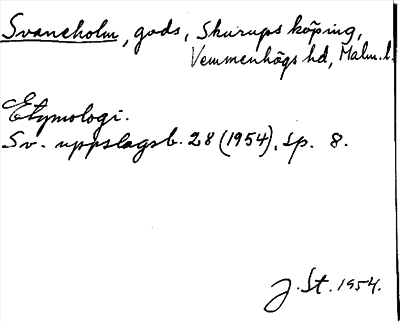 Svaneholm, gods, Skurups köping,
Vemmenhögs hd, Malm. l.
Etymologi.
Sv. uppslagsb. 28 (1954), sp. 8.
J. St. 1954.